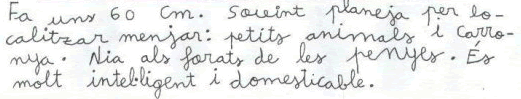 Fa uns 60 cm. Sovint planeja per lo-
calitzar menjar: petits animals i carro-
nya. Nia als forats de les penyes. És
molt intel·ligent i domesticable.